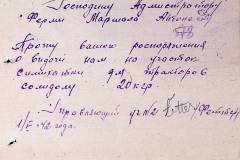 Господину Адмистратору
Ферми Маршала Антонеску
Прошу вашого роспоряжения
о выдачи нам на участок
для тракторов
солидолу 20 кгр.
Управляющий уч№2
1/ 42 года.